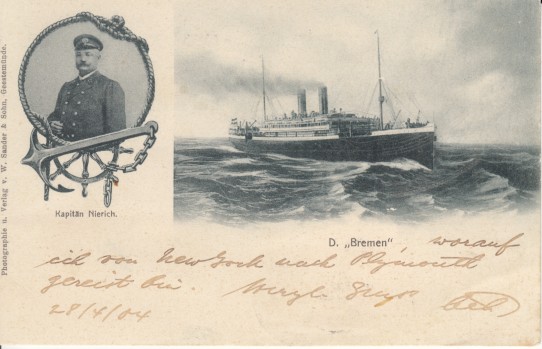 Photographie u. Verlag v. W. Sander & Sohn, Geestemünde.
Kapitän Nierich.
D. „Bremen", worauf
ich von New York nach Plymouth
gereist bin.
28/4/04